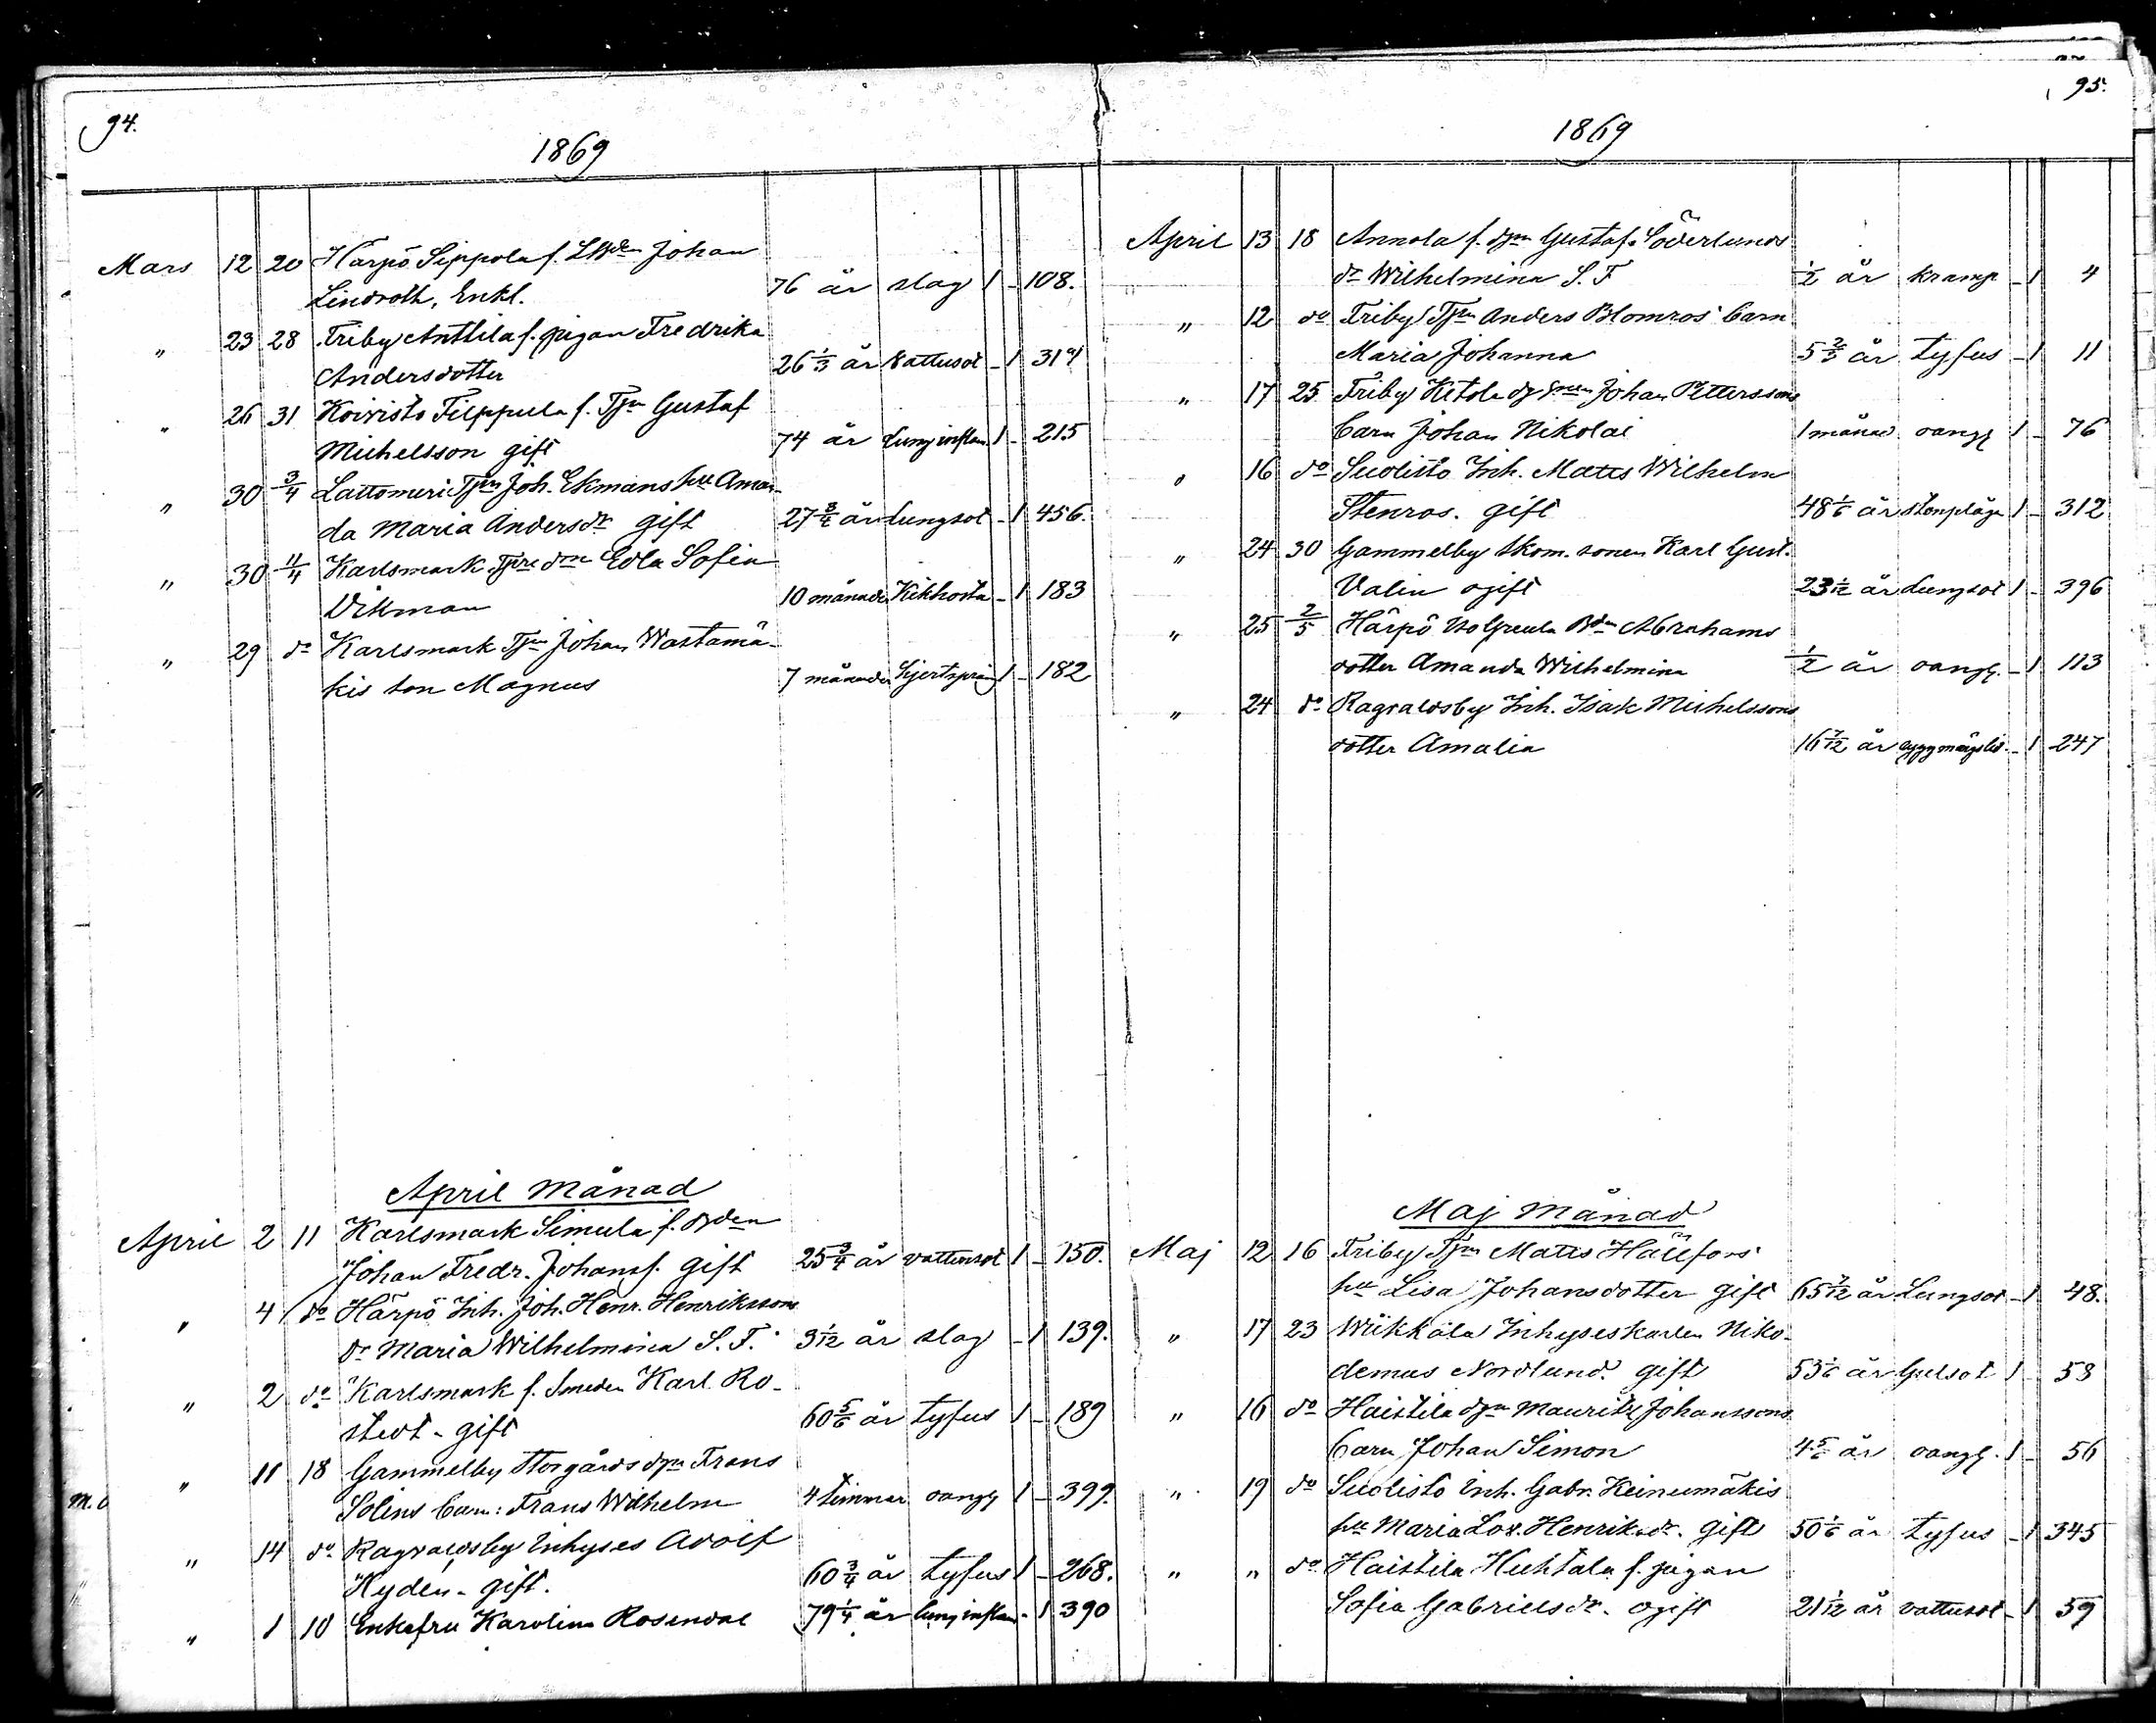 94.
1869
Mars 12 20 Härpö Sippola f. Johan
Lindroth, Enkl. 76 år slag 1 - 108.
" 23 28 Friby Anttila f. pigan Fredrika
Andersdotter 26 1/3 år vattusot - 1 314
" 26 31 Koivisto Filppula f. Tjn Gustaf
Michelsson gift 74 år Lunginflam. 1 - 215
" 30 3/4 Lattomeri Tjn Joh. Ekmans hu Aman-
da Maria Andersdr gift 27 3/4 år Lungsot - 1 456.
" 30 11/4 Karlsmark Edla Sofia
Vikman 10 månader Kikhosta - 1 183
" 29 do Karlsmark Tjn Johan Wastamä-
kis son Magnus 7 månader 1 - 182
April Månad
April 2 11 Karlsmark Simula f. Bden
Johan Fredr. Johansf. gift 25 3/4 år vattusot 1 - 150.
" 4 do Härpö Inh. Joh. Henr. Henrikssons
dr Maria Wilhelmina S. F. 3 1/12 år slag - 1 139.
" 2 do Karlsmark f. Smeden Karl Ro-
stedt - gift 60 5/6 år tyfus 1 - 189
" 11 18 Gammelby Storgårds dgn Frans
m.o Solins barn: Frans Wilhelm 4 timmar oangf 1 - 399.
" 14 do Ragvaldsby Inhyses Adolf
Hydén - gift. 60 3/4 år tyfus 1 - 268.
" 1 10 Enkefru Karolina Rosendal 79 1/4 år lunginflam - 1 390
95.
1869
April 13 18 Annola f. dgn Gustaf Söderlunds
dr Wilhelmina S. F 1/2 år kramp - 1 4
" 12 do Friby Tjn Anders Blomros' barn
Maria Johanna 5 2/3 år tyfus - 1 11
" 17 25 Friby Hetola Johan Petterssons
barn Johan Nikolai 1 månad oangf 1 - 76
" 16 do Suolisto Inh. Matts Wilhelm
Stenros. gift 48 1/6 år stenplåga 1 - 312
" 24 30 Gammelby skom. sonen Karl Gust.
Valin ogift 23 1/12 år Lungsot 1 - 396
" 25 2/5 Härpö Bdn Abrahams
dotter Amanda Wilhelmina 1/2 år oangf. - 1 113
" 24 do Ragvaldsby Inh. Isak Michelssons
dotter Amalia 16 7/12 år ryggmärgslid. - 1 247
Maj Månad
Maj 12 16 Friby Tjn Matts Hällfors'
hu Lisa Johansdotter gift 65 7/12 år Lungsot - 1 48.
" 17 23 Wiikkala Inhyseskarlen Niko-
demus Nordlund. gift 53 1/6 år Gulsot 1 - 53
" 16 do Haistila dgn Mauritz Johanssons
barn Johan Simon 4 5/6 år oangf. 1 - 56
" 19 do Suolisto Inh. Gabr. Keinumäkis
hu Maria Lov. Henriksdr. gift 50 1/6 år tyfus - 1 345
" " do Haistila Huhtala f. pigan
Sofia Gabrielsdr. ogift 21 1/12 år vattusot - 1 59